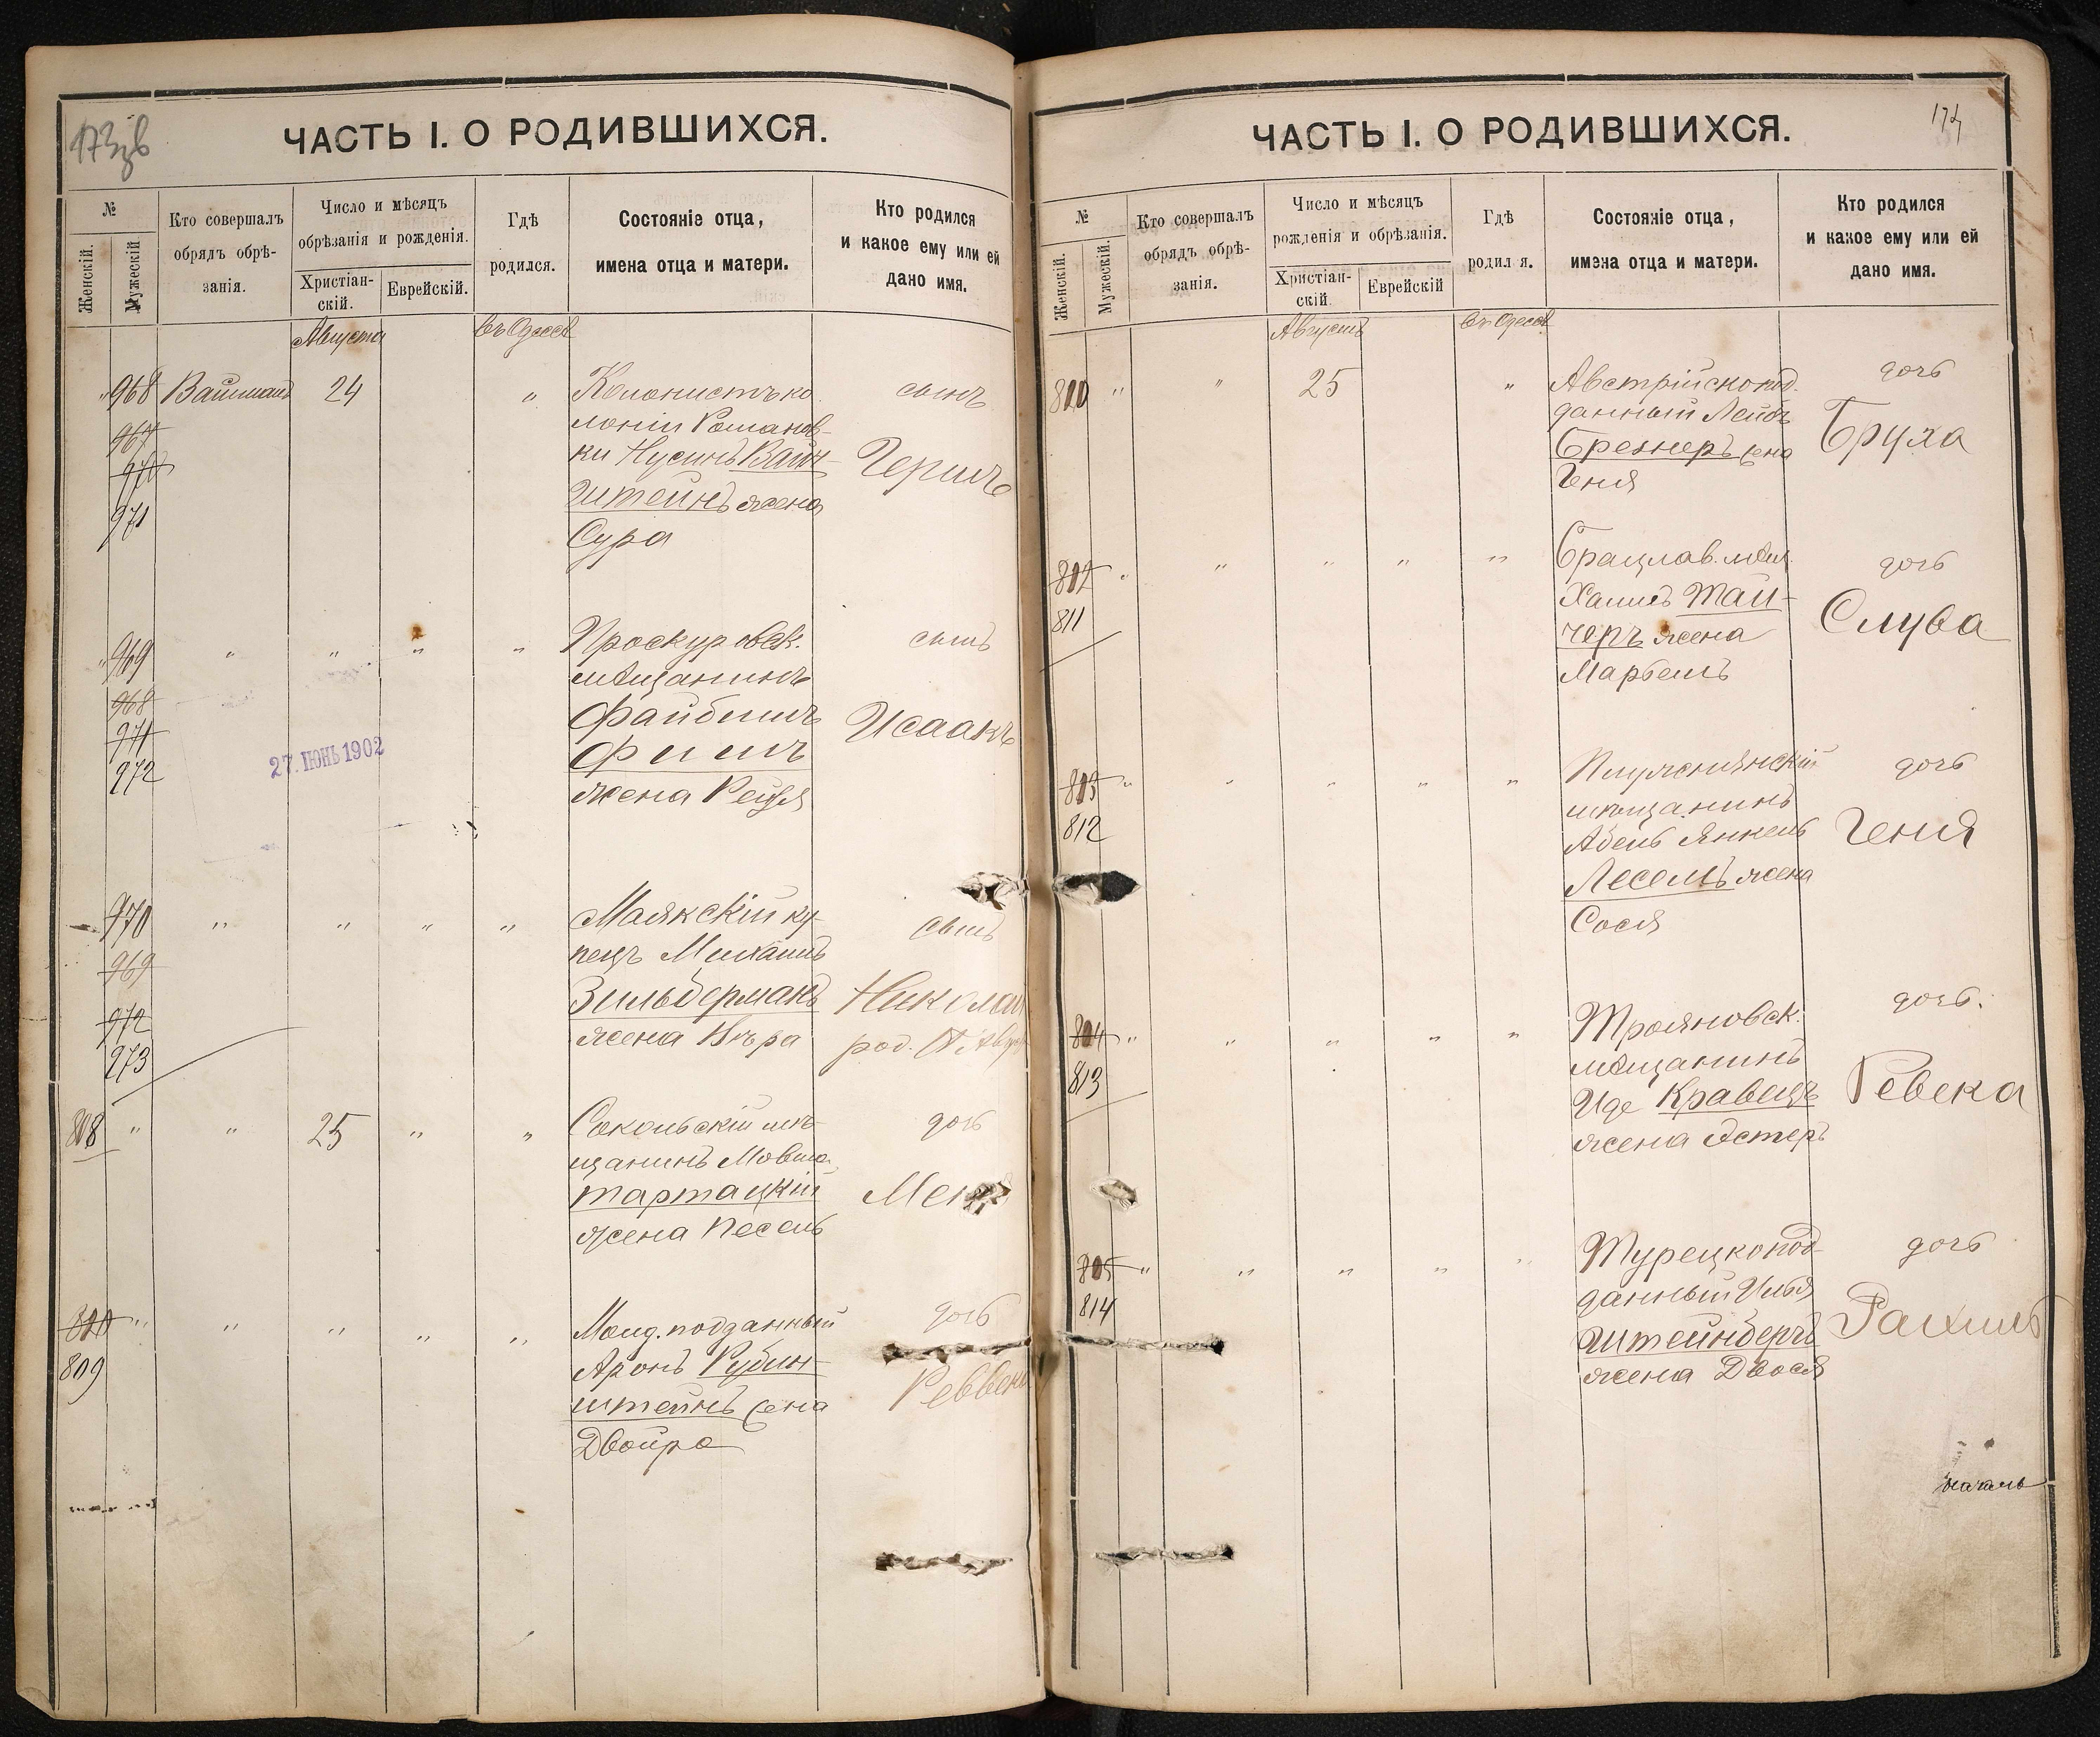 ЧАСТЬ I. О РОДИВШИХСЯ.
№
Женскій.
Мужескій
Кто совершалъ
обрядъ обрѣ-
занія.
Число и мѣсяцъ
обрѣзанія и рожденія.
Христіан-
скій.
Еврейскій.
Гдѣ
родился.
Состояніе отца,
имена отца и матери.
Кто родился
и какое ему или ей
дано имя.
Августа
въ Одессѣ
" 968 Вайсманъ 24 " Колонистъ ко
лоніи Романов-
ки Нусинъ Вайн-
штейнъ жена
Сура
сынъ
Гершъ
967
970
971
" 969 " " " " Проскуровск.
мѣщанинъ
Файбишъ
Фишъ
жена Рейзя
сынъ
Исаакъ
968
971
972
27. ІЮНЬ 1902
970 " " " " Маякскій ку-
пецъ Михаилъ
Зильберманъ
жена Вѣра
сынъ
Николай
род.
969
972
973
808 " " 25 " " Сокольскій мѣ-
щанинъ Мовша
Тартацкій
жена Песель
дочь
810 " " " " " Молд. подданный
Аронъ Рубин-
штейнъ жена
Двойра
дочь
809
ЧАСТЬ I. О РОДИВШИХСЯ.
174
№
Женскій.
Мужескій.
Кто совершалъ
обрядъ обрѣ-
занія.
Число и мѣсяцъ
рожденія и обрѣзанія.
Христіан-
скій.
Еврейскій
Гдѣ
родил я.
Состояніе отца,
имена отца и матери.
Кто родился
и какое ему или ей
дано имя.
Августъ
въ Одессѣ
810 " " 25 " Австрійскопод.
данный Лейбъ
Брехнеръ жена
Геня
дочь
Бруха
" " " " " Брацлав. мѣщ.
Хаимъ Тай-
черъ жена
Марбель
дочь
Слува
811
" " " " " 
мѣщанинъ
Абель Янкель
Лесель жена
Сося
дочь
Геня
812
804 " " " " " Трояновск.
мѣщанинъ
Иде Кравецъ
жена Эстеръ
дочь.
Ревека
813
805 " " " " " Турецкопод-
данный Илья
Штейнберъ
жена Двося
дочь
Рахиль
814